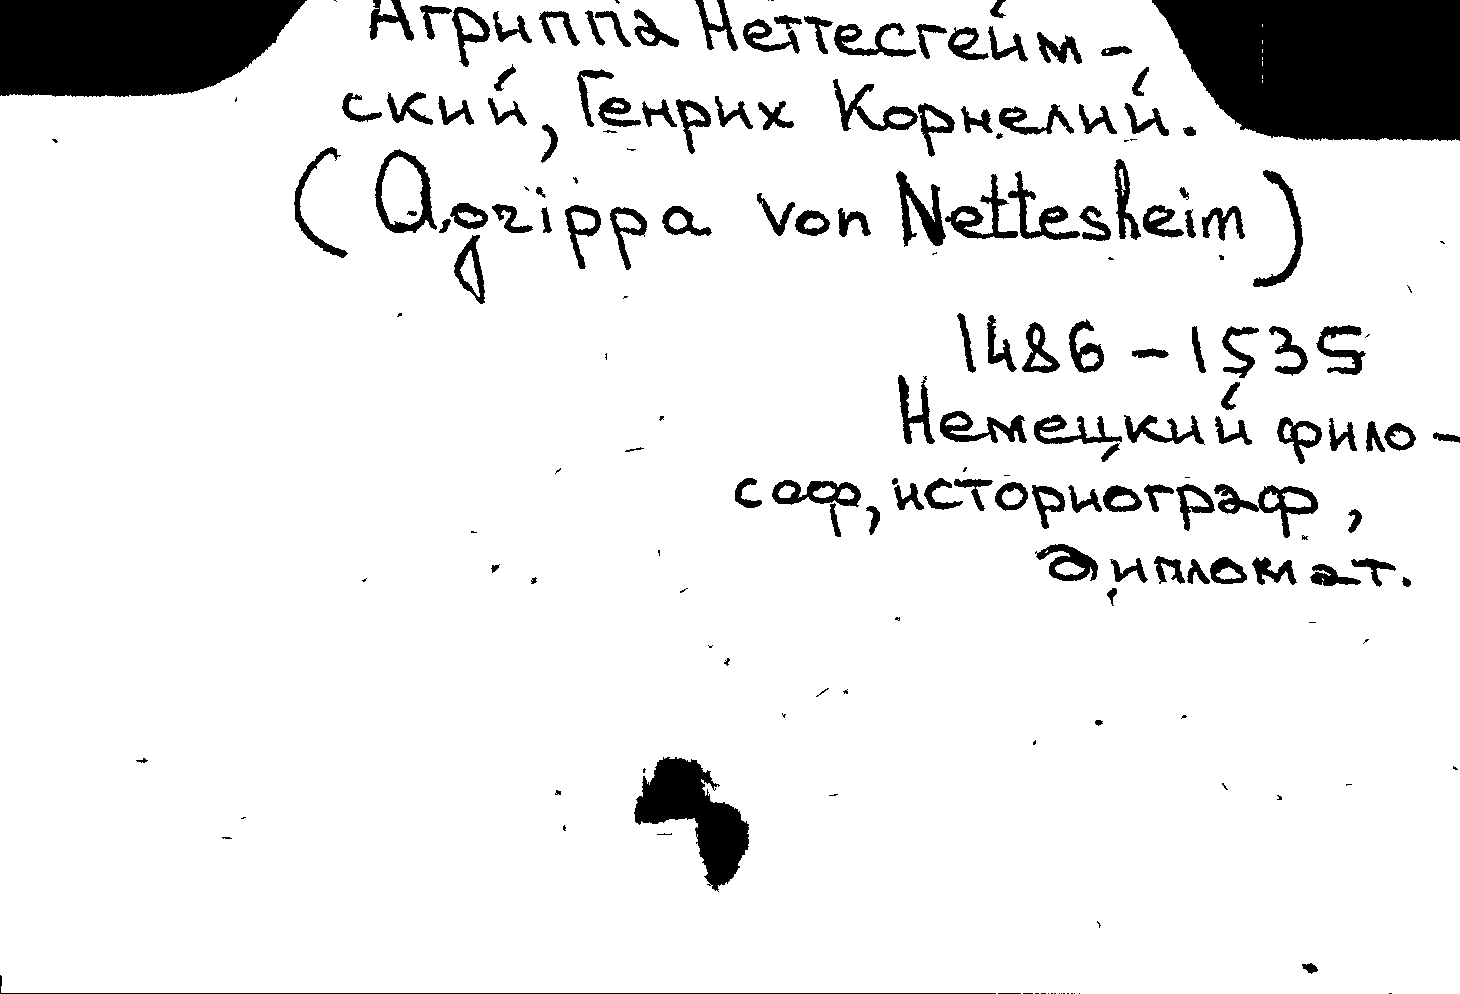 Агриппа Неттесгейм-
ский, Генрих Корнелий.
(Agrippa von Nettesheim)
1486 - 1535
Немецкий фило-
соф, историограф,
дипломат.